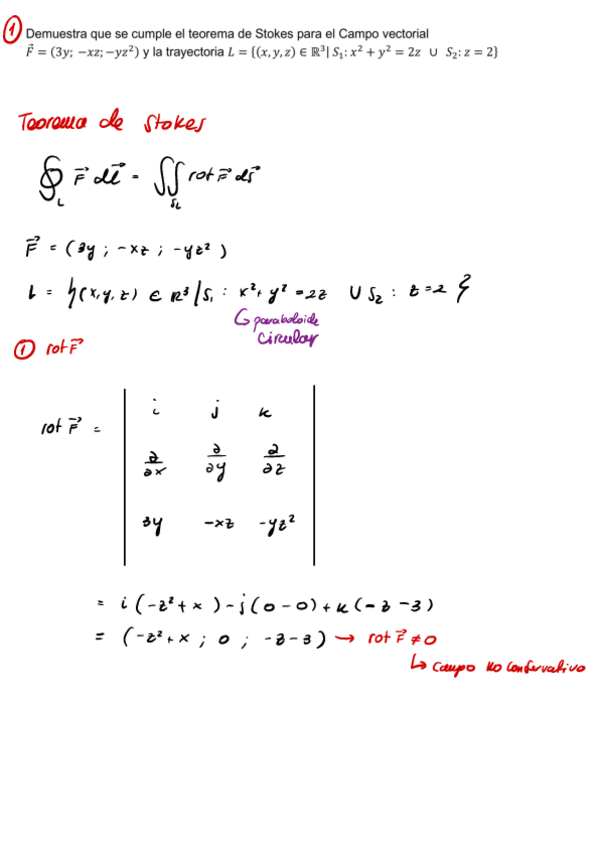 1 Demuestra que se cumple el teorema de Stokes para el Campo vectorial
F⃗ = (3y; −xz; −yz²) y la trayectoria L = {(x, y, z) ∈ ℝ³| S₁: x² + y² = 2z ∪ S₂: z = 2}
Teorema de Stokes
∮_L F⃗ dl⃗ = ∬_{S_L} rot F⃗ ds⃗
F⃗ = (3y ; −xz ; −yz²)
L = {(x, y, z) ∈ R³/S₁ : x² + y² = 2z ∪ S₂ : z = 2}
↳ paraboloide
circular
① rot F⃗
i j k
rot F⃗ =
∂/∂x ∂/∂y ∂/∂z
3y −xz −yz²
= i(−z² + x) − j(0 − 0) + k(−z − 3)
= (−z² + x ; 0 ; −z − 3) → rot F⃗ ≠ 0
↳ campo no conservativo